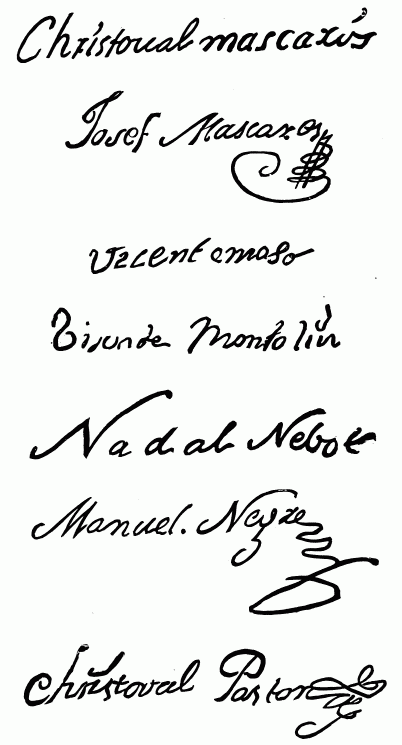 Christoual mascaros
Josef Mascaros
Vicent amaso
Visente Montoliu
Nadal Nebot
Manuel. Neyre
Christoval Pastor